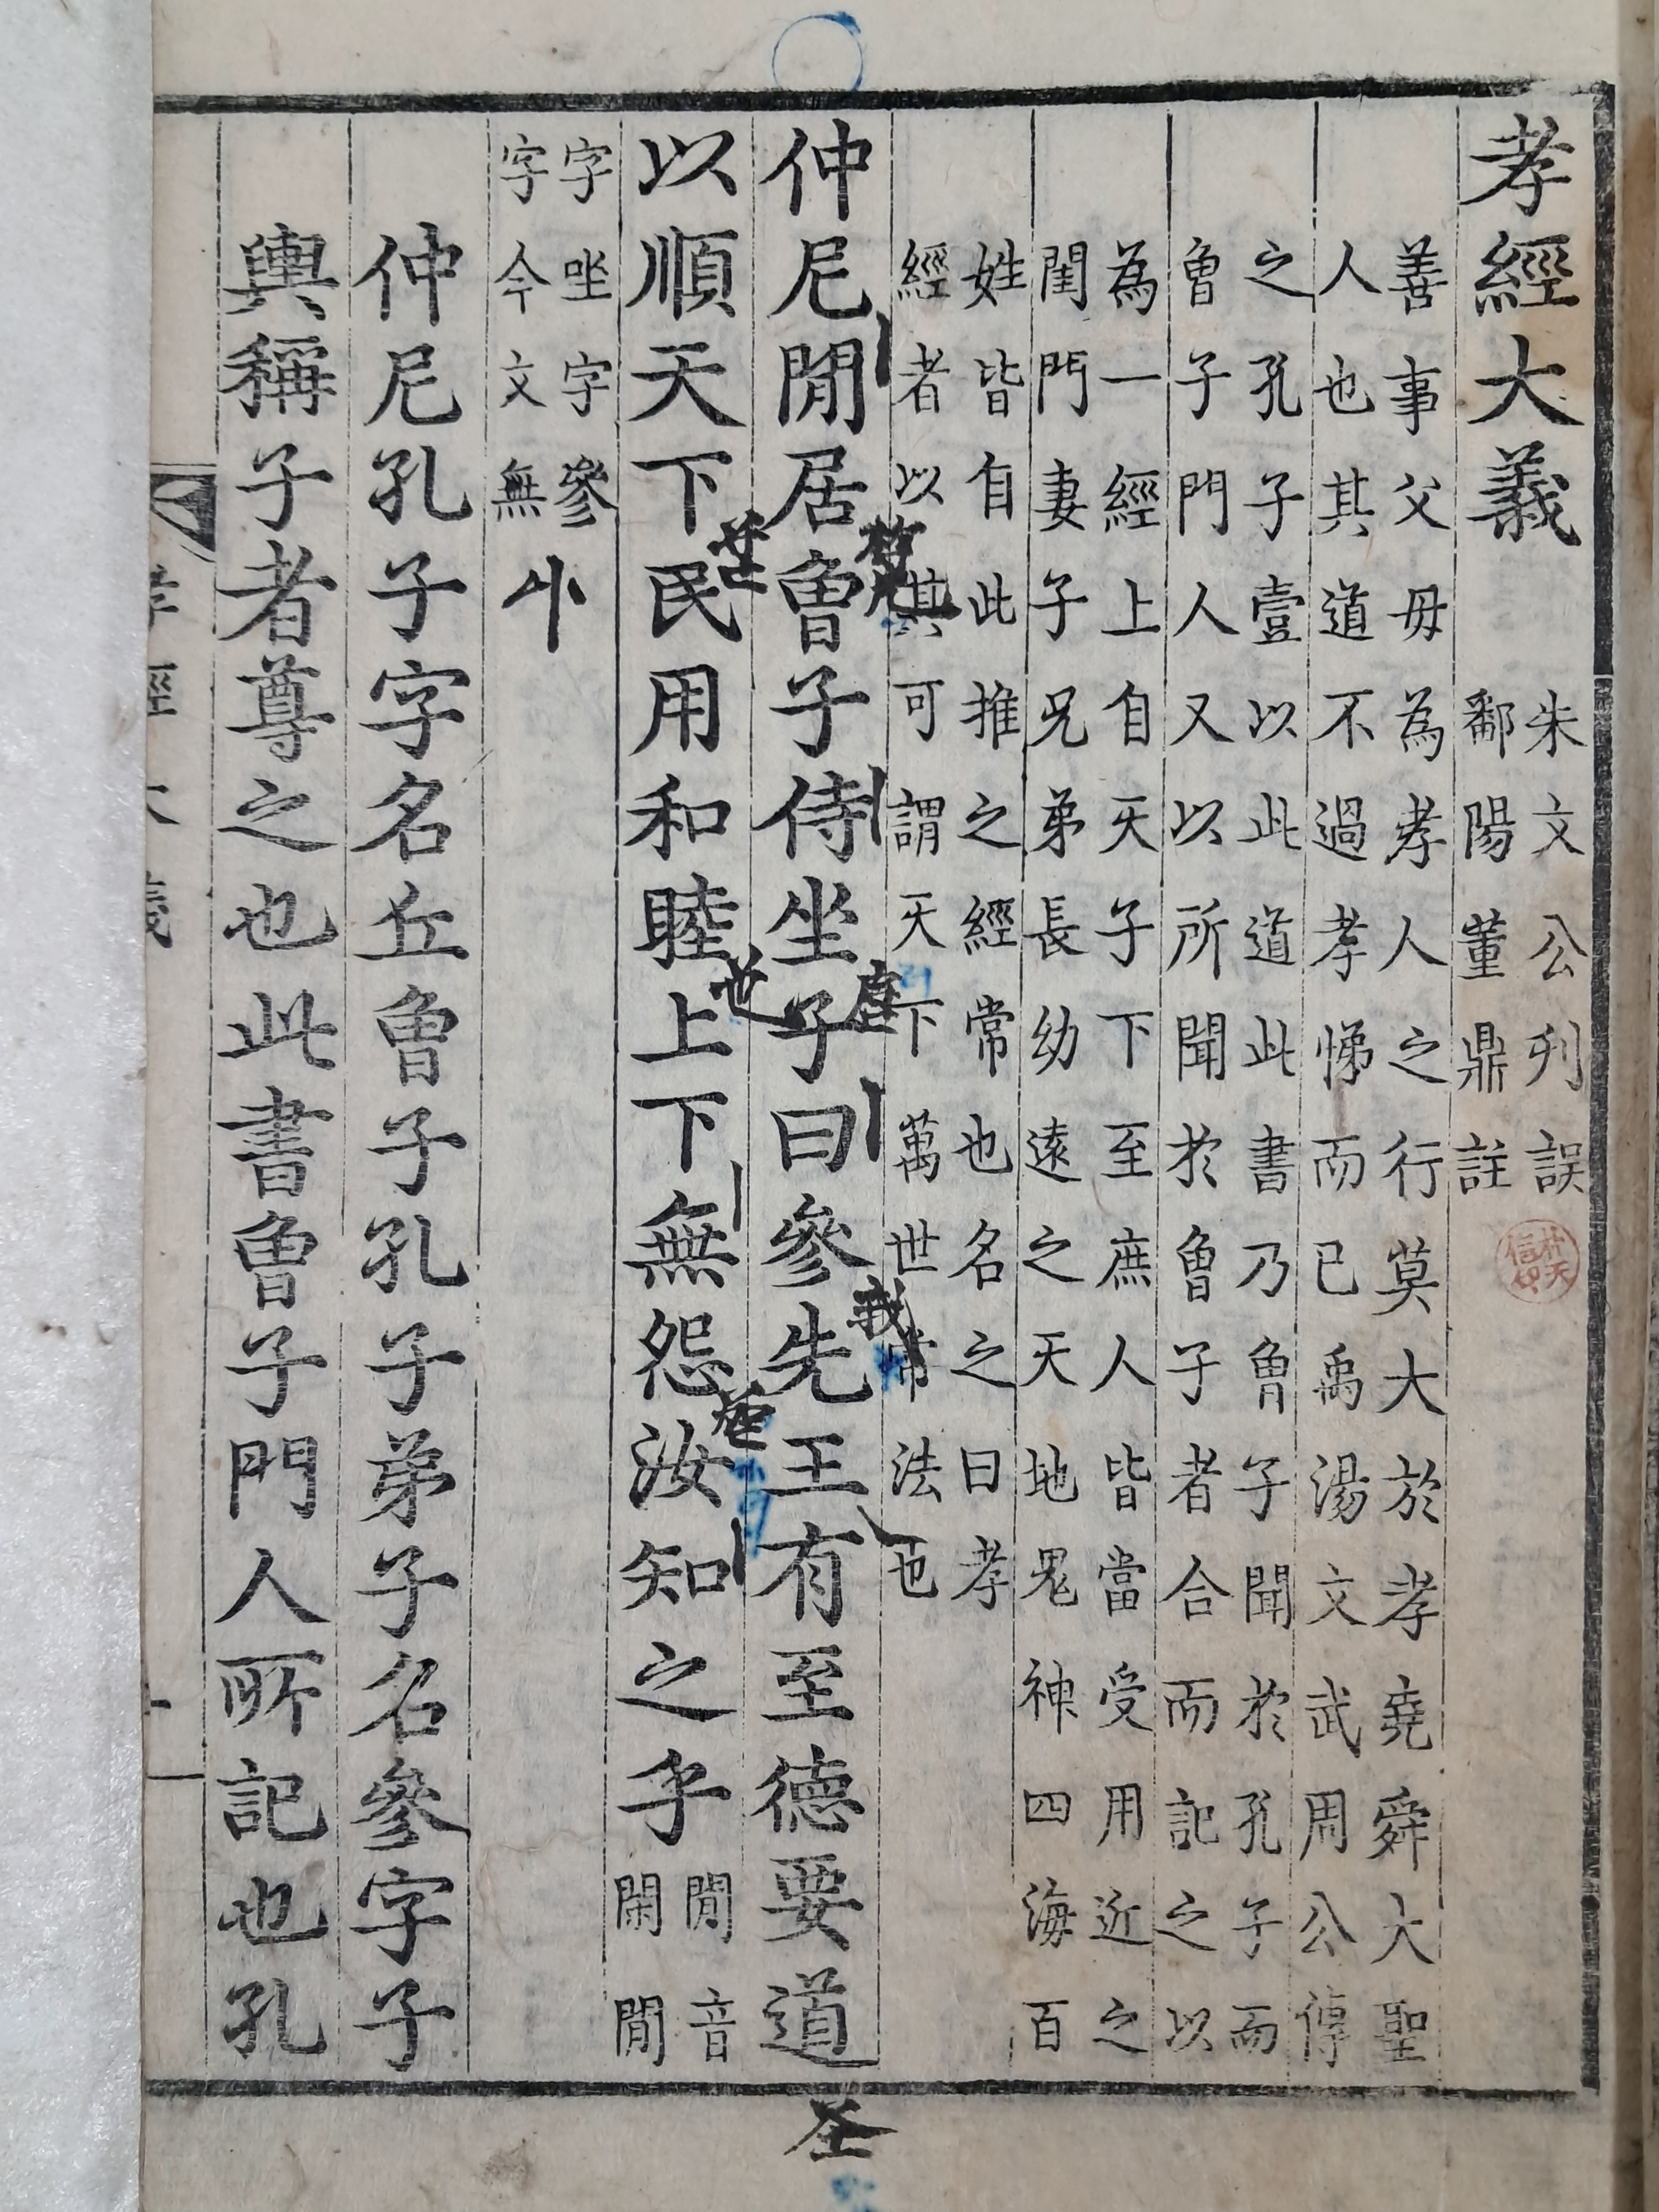 孝經大義
朱文公刋誤
鄱陽董鼎註
善事父母為孝人之行莫大於孝堯舜大聖
人也其道不過孝悌而已禹湯文武周公傳
之孔子壹以此道此書乃曾子聞於孔子而
曾子門人又以所聞於曾子者合而記之以
為一經上自天子下至庶人皆當受用近之
閨門妻子兄弟長幼遠之天地鬼神四海百
姓皆自此推之經常也名之曰孝
經者以其可謂天下萬世常法也
仲尼閒居曾子侍坐子曰參先王有至德要道
以順天下民用和睦上下無怨汝知之乎
閒音
閑閒
字坐字參
字今文無
仲尼孔子字名丘曾子孔子弟子名參字子
輿稱子者尊之也此書曾子門人所記也孔